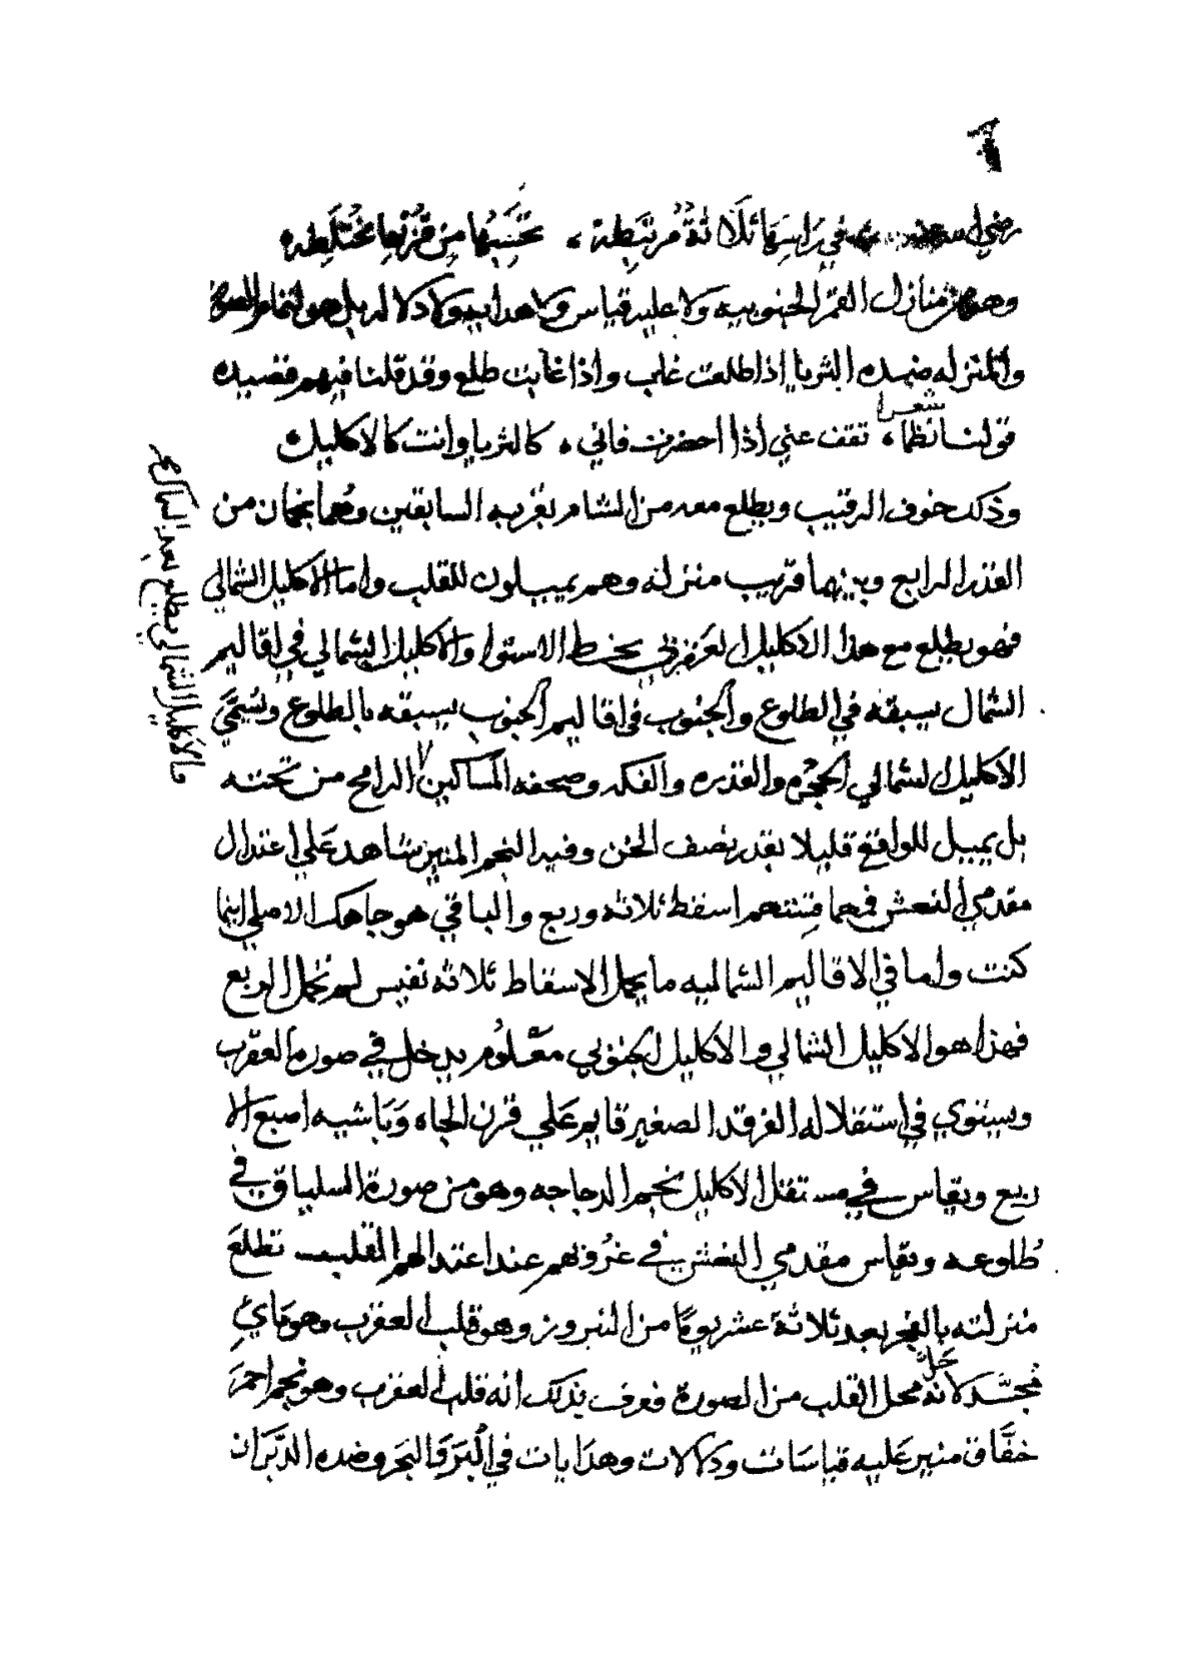 رضي الله في راسها ثلاثة مرتبطة ، تحسبها من قربها مختلطه
وهو من منازل القمر الجنوبيه ولا عليه قياس ولا هدايه ولا دلاله بل هو لتمام
والمنزله ضده الثريا اذا طلعت غاب واذا غابت طلع وقد قلنا فيهم قصيده
قولنا نظما شعرا ، تقف عني اذا احضرت فاني ، كالثريا وانت كالاكليل
وذلك خوف الرقيب ويطلع معه من الشام بقربه السابقين وهما نجمان من
القدر الرابع وبينهما قريب منزله وهم يميلون للقلب واما الاكليل الشمالي
فهو يطلع مع هذا الاكليل العقربي بخط الاستوا والاكليل الشمالي في اقاليم
الشمال يسبقه في الطلوع والجنوب في اقاليم الجنوب يسبقه بالطلوع وتسمي
الاكليل الشمالي والفكه وصحفه المساكين الرامح من تحته
بل يميل للواقع قليلا بقدر نصف الخن وفيه النجم المنير شاهد علي اعتدال
مقدمي النعش فمهما قستهم اسقط ثلاثه وربع والباقي هو جاهك الاصلي اينما
كنت واما في الاقاليم الشماليه ما يحمل الاسقاط ثلاثه نفيس لم تحمل الربع
فهذا هو الاكليل الشمالي والاكليل الجنوبي معلوم يدخل في صورة العقرب
ويستوي في استقلاله الفرقد الصغير قايم علي قرن الجاه وباشيه اصبع الا
ربع ويقاس في مستقل الاكليل نجم الدجاجه وهو من صورة السلياق في
طلوعه ويقاس مقدمي النعش في غروبهم عند اعتدالهم القلب تطلع
منزلته بالفجر بعد ثلاثة عشر يوما من النيروز وهو قلب العقرب وهو
لانه حل محل القلب من الصورة فعرف بذلك انه قلب العقرب وهو نجم احمر
خفاق منير عليه قياسات ودلالات وهدايات في البر والبحر وضده الدبران
فالاكليل الشمالي يطلع بعد السماك